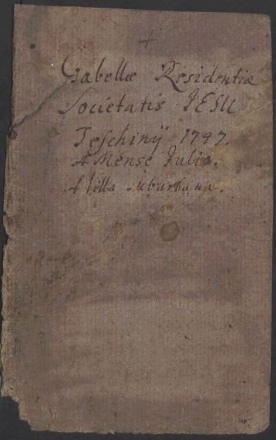 +
Gabellæ Residentiæ
Societatis IESU
Teschinÿ 1747.
A Mense Julio.
A Villa Suburbana.